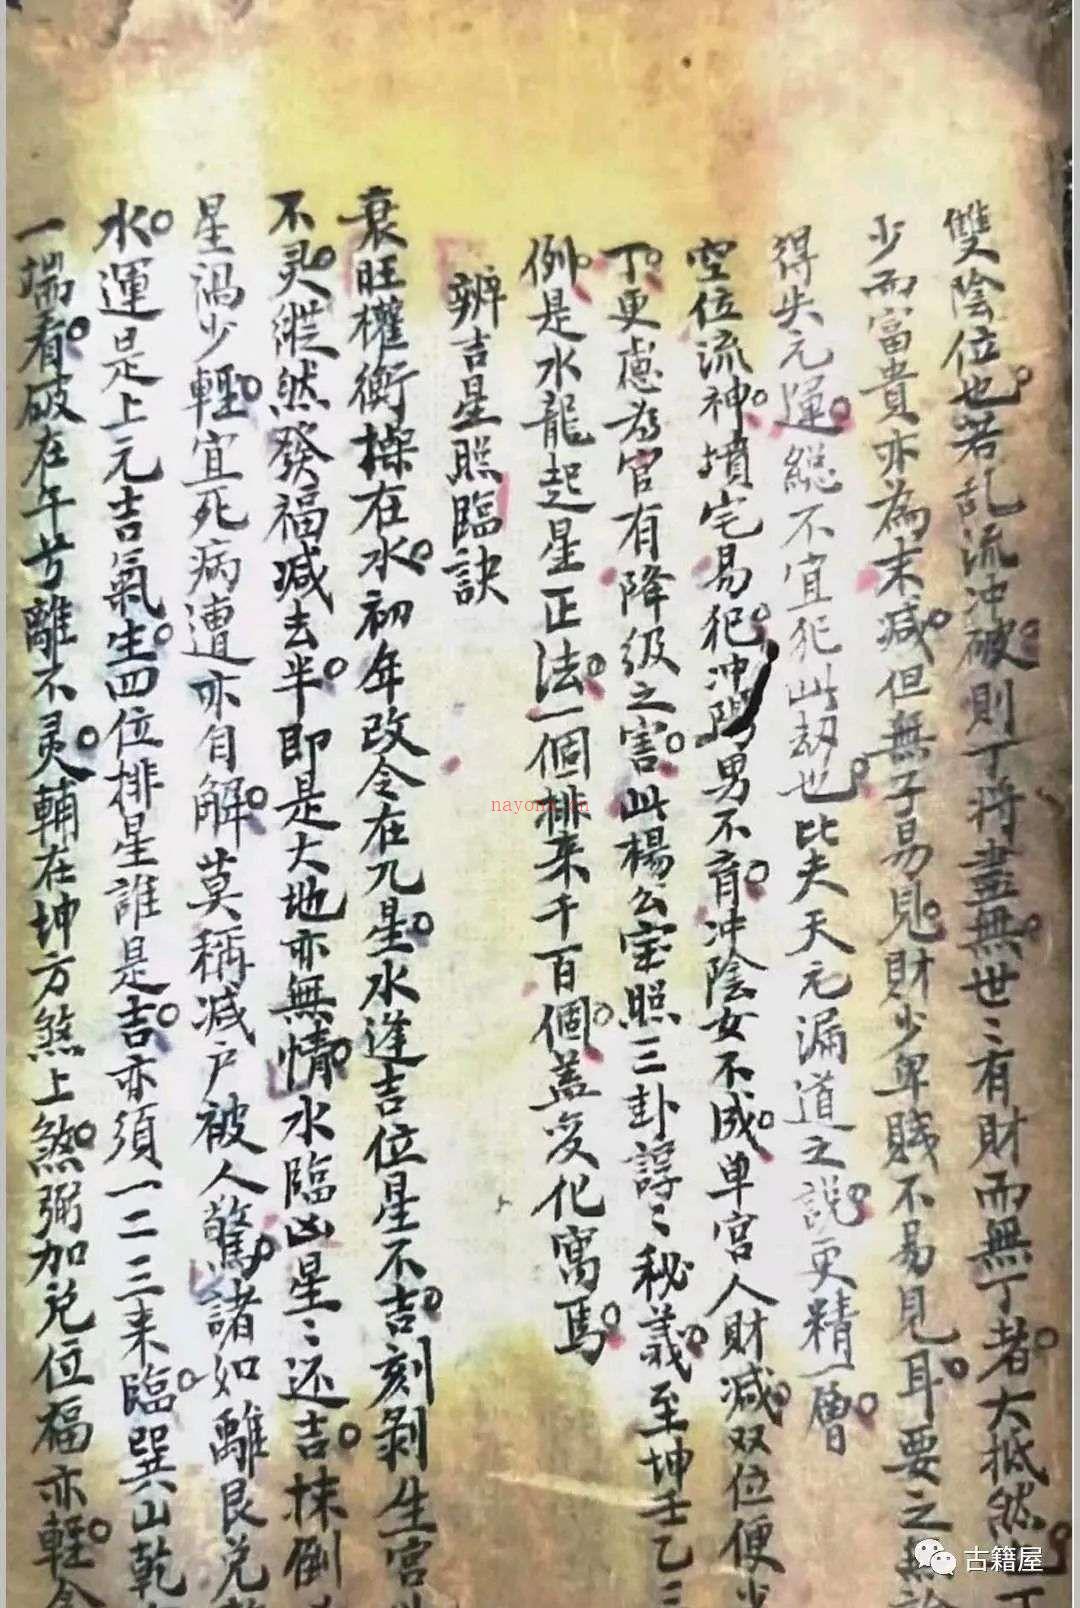 雙陰位也若乱流冲破則丁將盡無世〻有財而無丁者大抵然
少而富貴亦為末減但無子易見財少卑賤不易見耳要之無論
得失元運總不宜犯此劫也比夫天元漏道之說更精一層
空位流神墳宅易犯冲陽男不育冲陰女不成单宮人財減双位便少
丁更慮為官有降级之害此楊公宝照三卦諄〻秘義至坤壬乙三
例是水龍起星正法一個排来千百個盖变化寓焉
辨吉星照臨訣
衰旺權衡操在水初年改令在九星水逢吉位星不吉刻剥生宮
不灵縱然發福減去半即是大地亦無情水臨凶星〻还吉抹倒
星渦少輕宜死病遭亦自解莫稱减户被人驚諸如離艮兑
水運是上元吉氣生四位排星誰是吉亦須一二三来臨巽山乾
一端看破在午兮離不灵輔在坤方煞上煞弼加兑位福亦輕
nayona.cn
古籍屋